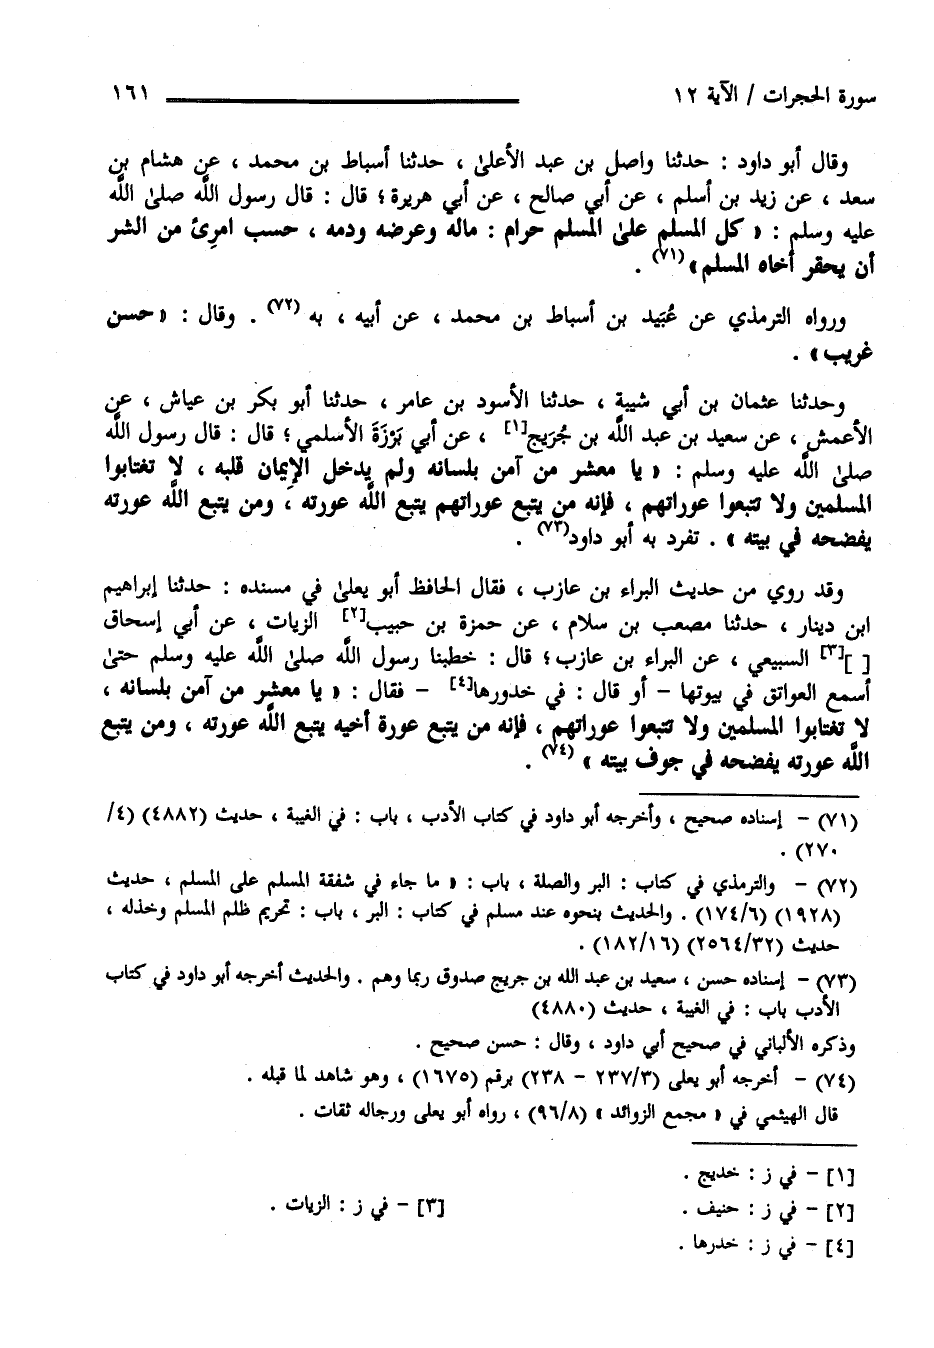 سورة الحجرات / الآية ١٢ ١٦١
وقال أبو داود : حدثنا واصل بن عبد الأعلىٰ ، حدثنا أسباط بن محمد ، عن هشام بن
سعد ، عن زيد بن أسلم ، عن أبي صالح ، عن أبي هريرة ؛ قال : قال رسول اللَّه صلىٰ اللَّه
عليه وسلم : « كل المسلم علىٰ المسلم حرام : ماله وعرضه ودمه ، حسب امرِئ من الشر
أن يحقر أخاه المسلم »(٧١) .
ورواه الترمذي عن عُبَيد بن أسباط بن محمد ، عن أبيه ، به (٧٢) . وقال : « حسن
غريب » .
وحدثنا عثمان بن أبي شيبة ، حدثنا الأسود بن عامر ، حدثنا أبو بكر بن عياش ، عن
الأعمش ، عن سعيد بن عبد اللَّه بن جُرَيج[١] ، عن أبي بَرْزَةَ الأسلمي ؛ قال : قال رسول اللَّه
صلىٰ اللَّه عليه وسلم : « يا معشر من آمن بلسانه ولم يدخل الإِيمان قلبه ، لا تغتابوا
المسلمين ولا تتبعوا عوراتهم ، فإنه من يتبع عوراتهم يتبع اللَّه عورته ، ومن يتبع اللَّه عورته
يفضحه في بيته » . تفرد به أبو داود(٧٣) .
وقد روي من حديث البراء بن عازب ، فقال الحافظ أبو يعلىٰ في مسنده : حدثنا إبراهيم
ابن دينار ، حدثنا مصعب بن سلام ، عن حمزة بن حبيب[٢] الزيات ، عن أبي إسحاق
[ ][٣] السبيعي ، عن البراء بن عازب ؛ قال : خطبنا رسول اللَّه صلىٰ اللَّه عليه وسلم حتىٰ
أسمع العواتق في بيوتها - أو قال : في خدورها[٤] - فقال : « يا معشر من آمن بلسانه ،
لا تغتابوا المسلمين ولا تتبعوا عوراتهم ، فإنه من يتبع عورة أخيه يتبع اللَّه عورته ، ومن يتبع
اللَّه عورته يفضحه في جوف بيته » (٧٤) .
(٧١) - إسناده صحيح ، وأخرجه أبو داود في كتاب الأدب ، باب : في الغيبة ، حديث (٤٨٨٢) (٤/
٢٧٠) .
(٧٢) - والترمذي في كتاب : البر والصلة ، باب : « ما جاء في شفقة المسلم على المسلم ، حديث
(١٩٢٨) (١٧٤/٦) . والحديث بنحوه عند مسلم في كتاب : البر ، باب : تحريم ظلم المسلم وخذله ،
حديث (٢٥٦٤/٣٢) (١٨٢/١٦) .
(٧٣) - إسناده حسن ، سعيد بن عبد الله بن جريج صدوق ربما وهم . والحديث أخرجه أبو داود في كتاب
الأدب باب : في الغيبة ، حديث (٤٨٨٠)
وذكره الألباني في صحيح أبي داود ، وقال : حسن صحيح .
(٧٤) - أخرجه أبو يعلى (٢٣٧/٣ - ٢٣٨) برقم (١٦٧٥) ، وهو شاهد لما قبله .
قال الهيثمي في « مجمع الزوائد » (٩٦/٨) ، رواه أبو يعلى ورجاله ثقات .
[١] - في ز : خديج .
[٢] - في ز : حنيف . [٣] - في ز : الزيات .
[٤] - في ز : خدرها .